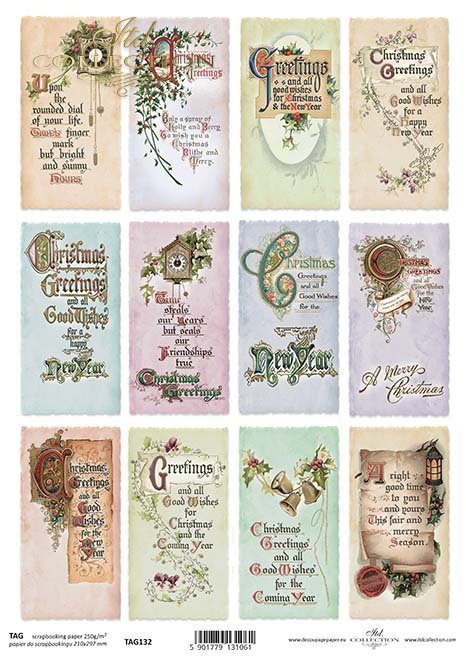 itd.
COLLECTION
Upon
the
rounded dial
of your life.
Time's finger
mark
but bright
and sunny
Hours
Christmas
Greetings
Only a spray of
Holly and Berry
To wish you a
Christmas
Blithe and
Merry.
Greetings
and all
good wishes
for Christmas
& the New Year
Christmas
Greetings
and all
Good Wishes
for a
Happy
New Year
Christmas
Greetings
and all
Good Wishes
for a
happy
New Year.
Time
steals
our Years
but seals
our
Friendships
true
Christmas
Greetings
Christmas
Greetings
and all
Good Wishes
for the
New Year
Christmas
Greetings
and all
Good Wishes
for the
New
Year
A Merry
Christmas
Christmas
Greetings
and all
Good
Wishes
for the
New
Year
Greetings
and all
Good Wishes
for
Christmas
and the
Coming Year
Christmas
Greetings
and all
Good Wishes
for the
Coming Year
A right
good time
to you
and yours
This fair and
merry
Season.
TAG scrapbooking paper 250g/m²
papier do scrapbookingu 210x297 mm
TAG132
5 901779 131061
www.decoupagepaper.eu
itd.
COLLECTION
www.itdcollection.com